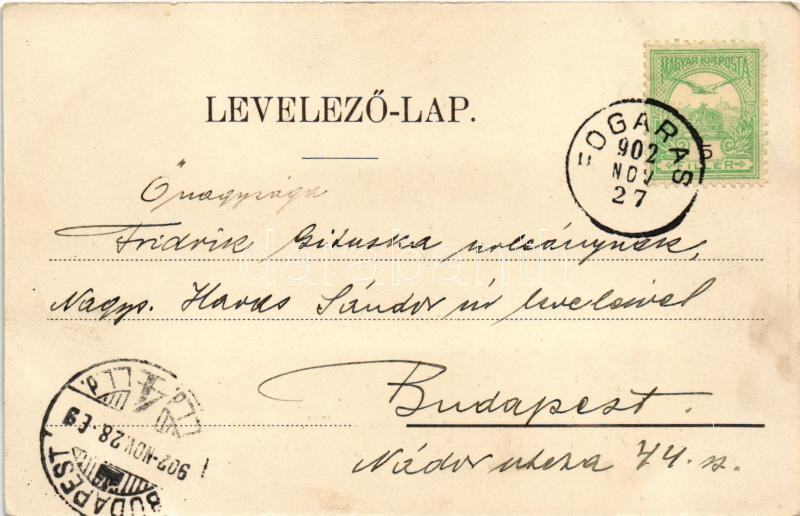 LEVELEZŐ-LAP.
MAGYAR KIR. POSTA
5
FILLÉR
FOGARAS
902
NOV
27
Őnagysága
Fridrik Gizuska urleánynak,
Nagys. Havas Sándor úr leveleivel
Budapest.
Nádor utcza 44. sz.
BUDAPEST
902-NOV.28-E9
darabanth